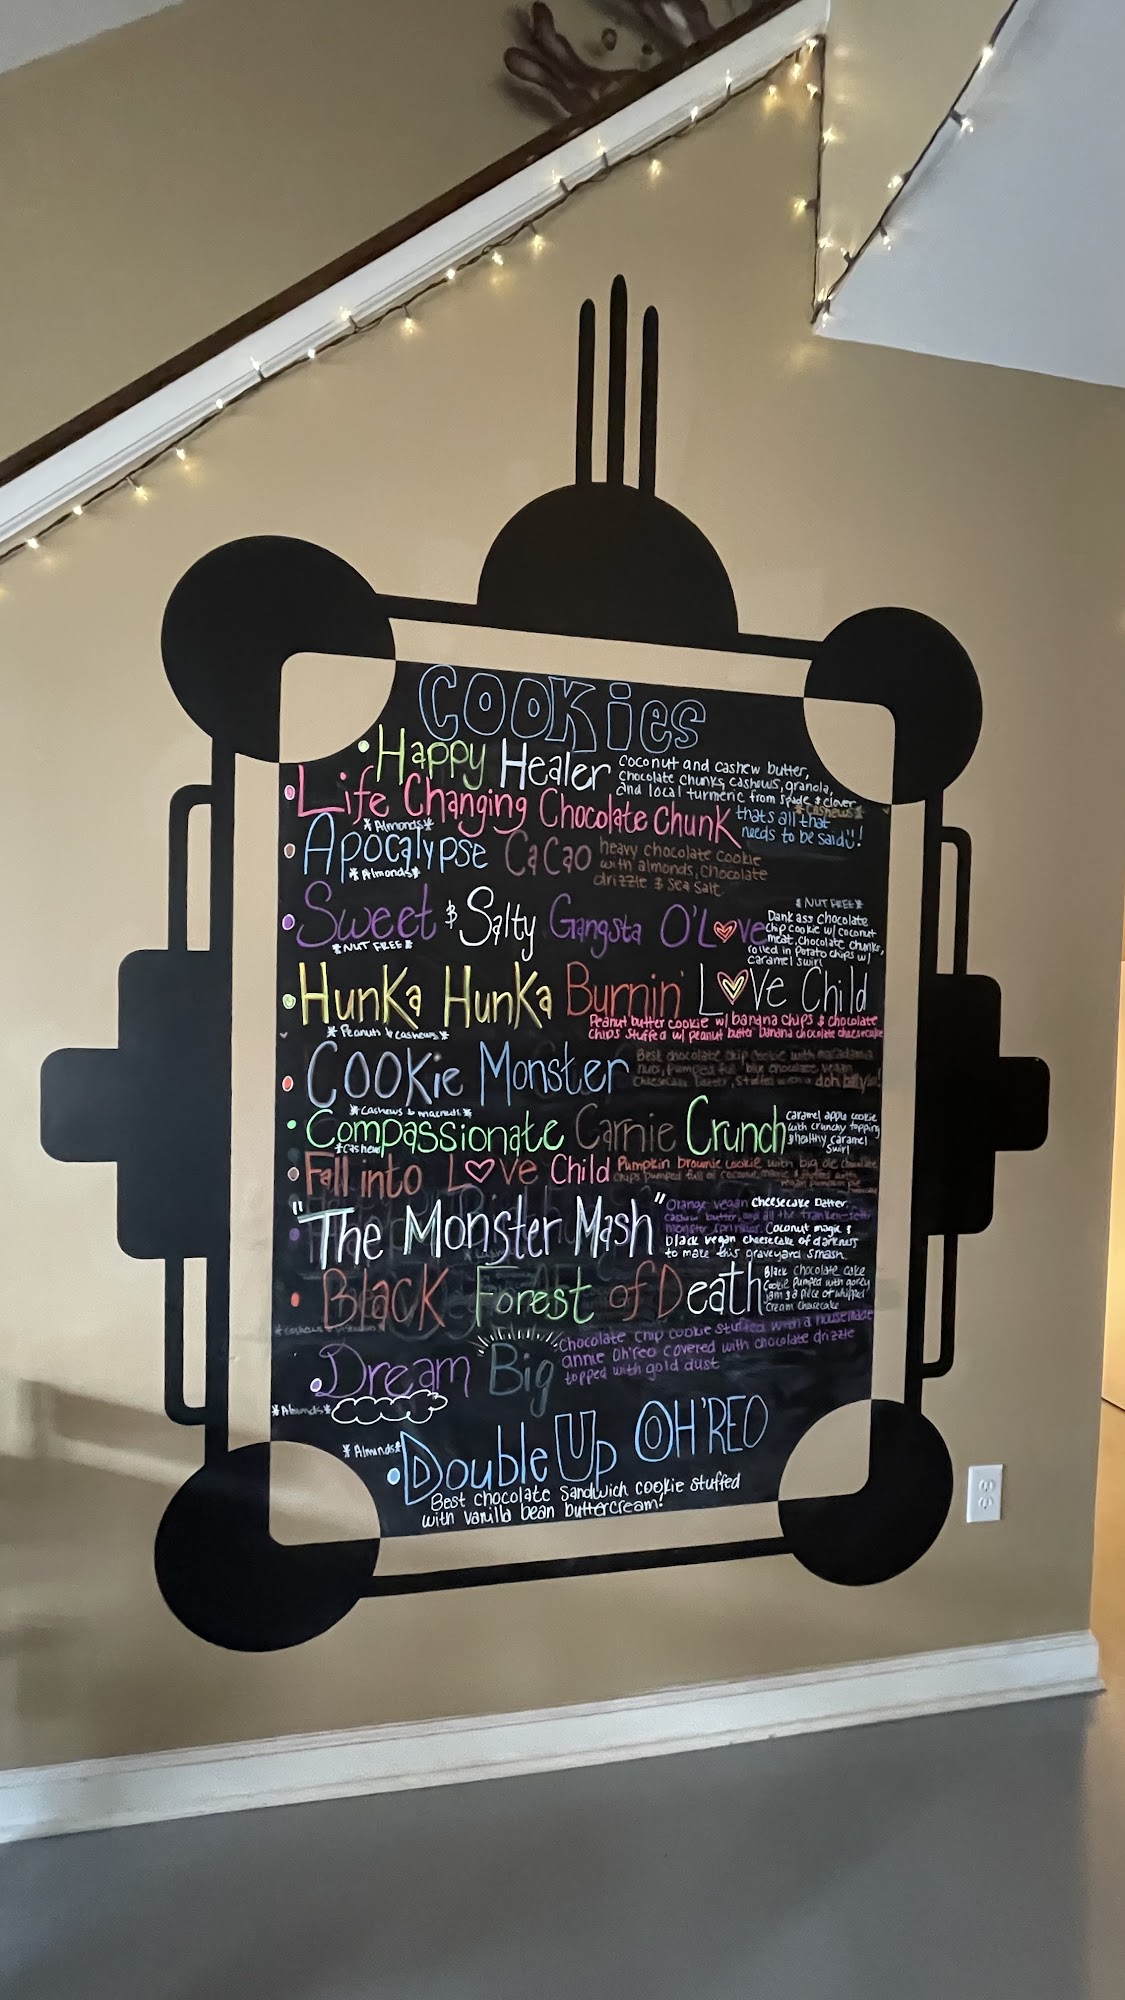 COOKies
Happy Healer
coconut and cashew butter,
chocolate chunks, cashews, granola,
and local turmeric from Spade & Clover
*Cashews*
Life Changing Chocolate Chunk
thats all that
needs to be said!
*Almonds*
Apocalypse CaCao
heavy chocolate cookie
with almonds, chocolate
drizzle & sea salt.
*Almonds*
Sweet & Salty Gangsta O'Love
*NUT FREE*
Dank ass chocolate
chip cookie w/ coconut
meat, chocolate chunks,
rolled in potato chips w/
caramel swirl
*NUT FREE*
HunKa HunKa Burnin' Love Child
Peanut butter cookie w/ banana chips & chocolate
chips stuffed w/ peanut butter banana chocolate cheesecake
*Peanuts & cashews*
COOKie Monster
Best chocolate chip cookie with macadamia
nuts, pumped full blue chocolate vegan
cheesecake batter, stuffed with a doh
*Cashews &
Compassionate Carnie Crunch
caramel apple cookie
with crunchy topping
& healthy caramel
swirl
*Cashew
Fall into Love Child
Pumpkin brownie cookie with big ole chocolate
chips pumped full of coconut magic & stuffed with
vegan pumpkin pie
"The Monster Mash"
Orange vegan cheesecake batter,
cashew butter, and all the
monster sprinkles. Coconut magic &
black vegan cheesecake of darkness
to make this graveyard smash.
BlacK Forest of Death
Black chocolate cake
cookie pumped with gorey
jam & a piece of whipped
cream cheesecake
Dream Big
Chocolate chip cookie stuffed with a housemade
annie Oh'reo covered with chocolate drizzle
topped with gold dust
*Almonds*
*Almonds*
Double Up OH'REO
Best chocolate sandwich cookie stuffed
with vanilla bean buttercream!